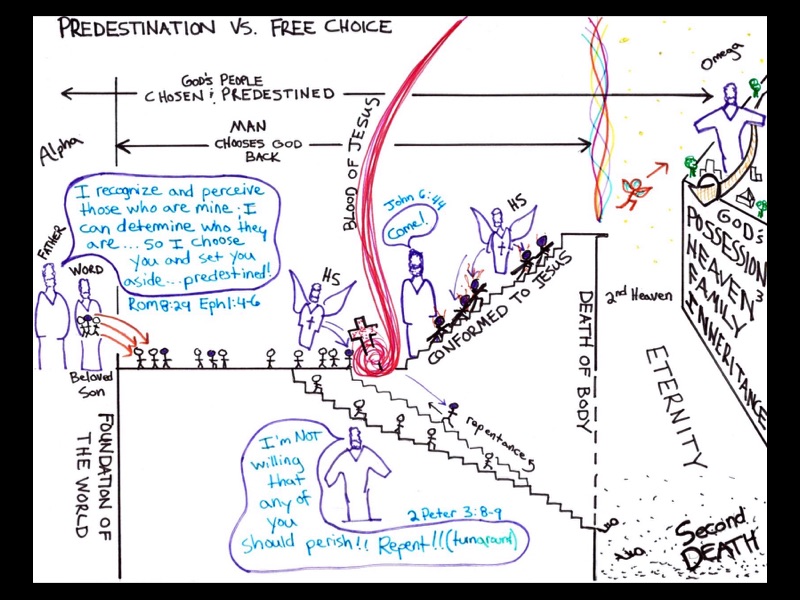 PREDESTINATION VS. FREE CHOICE
GOD'S PEOPLE
CHOSEN & PREDESTINED
MAN
CHOOSES GOD
BACK
Alpha
Omega
FATHER
WORD
I recognize and perceive
those who are mine. I
can determine who they
are... so I choose
you and set you
aside...predestined!
Rom 8:29 Eph 1:4-6
Beloved
Son
FOUNDATION OF
THE WORLD
HS
BLOOD OF JESUS
John 6:44
Come!
HS
CONFORMED TO JESUS
repentance
I'm NOT
willing
that
any of
you
should perish!! Repent!!(turnaround)
2 Peter 3:8-9
DEATH OF BODY
2nd Heaven
ETERNITY
GOD's
POSSESSION
HEAVEN 3
FAMILY
INNERITANCE
Second
DEATH